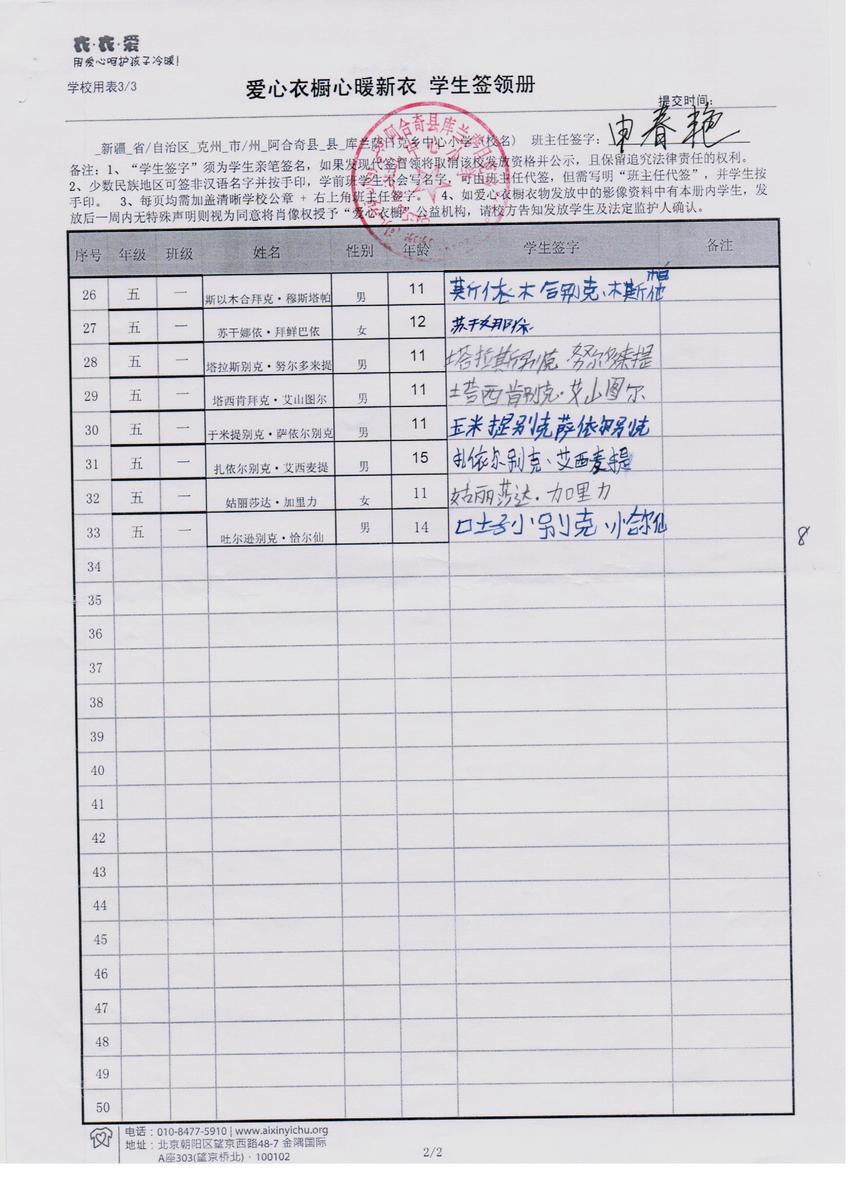 衣·衣·爱
用爱心呵护孩子冷暖!
学校用表3/3
爱心衣橱心暖新衣 学生签领册
提交时间:
_新疆_省/自治区_克州_市/州_阿合奇县_县_库兰萨日克乡中心小学_(校名) 班主任签字: 申春艳
备注:1、“学生签字”须为学生亲笔签名,如果发现代签冒领将取消该校发放资格并公示,且保留追究法律责任的权利。
2、少数民族地区可签非汉语名字并按手印,学前班学生不会写名字,可由班主任代签,但需写明“班主任代签”,并学生按
手印。 3、每页均需加盖清晰学校公章 + 右上角班主任签字。 4、如爱心衣橱衣物发放中的影像资料中有本册内学生,发
放后一周内无特殊声明则视为同意将肖像权授予“爱心衣橱”公益机构,请校方告知发放学生及法定监护人确认。
序号 年级 班级 姓名 性别 年龄 学生签字 备注
26 五 一 斯以木合拜克·穆斯塔帕 男 11
27 五 一 苏干娜依·拜鲜巴依 女 12 苏干娜依
28 五 一 塔拉斯别克·努尔多来提 男 11 塔拉斯别克 努尔多来提
29 五 一 塔西肯拜克·艾山图尔 男 11 塔西肯别克·艾山图尔
30 五 一 于米提别克·萨依尔别克 男 11 玉米提别克萨依尔别克
31 五 一 扎依尔别克·艾西麦提 男 15 扎依尔别克、艾西麦提
32 五 一 姑丽莎达·加里力 女 11 姑丽莎达·加里力
33 五 一 吐尔逊别克·恰尔仙 男 14
8
34
35
36
37
38
39
40
41
42
43
44
45
46
47
48
49
50
电话:010-8477-5910 | www.aixinyichu.org
地址:北京朝阳区望京西路48-7 金隅国际
A座303(望京桥北)·100102
2/2